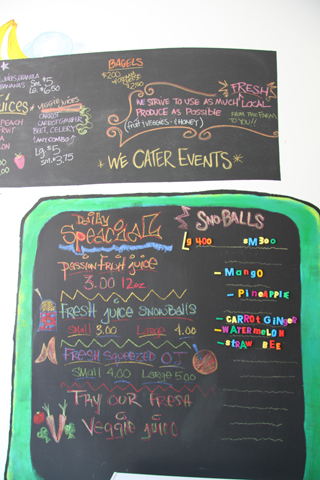 BAGELS
$2.00
Sm. $5
Lg. $6.50
BANANAS
JUICES
PEACH
FRUIT
VEGGIE JUICES
CARROT
CARROT GINGER
BEET, CELERY
(ANY COMBO)
Lg. $5
sm. $3.75
FRESH
LOCAL
WE STRIVE TO USE AS MUCH
PRODUCE AS POSSIBLE
(FRUIT & VEGGIES - & HONEY)
FROM THE FARM
TO YOU!!
*WE CATER EVENTS*
DAILY
SPECIALZ
PASSION FRUIT JUICE
3.00 12oz
FRESH JUICE SNOWBALLS
Small 3.00 Large 4.00
FRESH SQUEEZED OJ
Small 4.00 Large 5.00
TRY OUR FRESH
VEGGIE JUICE
SNOBALLS
Lg 400 SM 300
- Mango
- PINEAPPLE
- CARROT GINGER
- WATERMELON
- STRAW BEE